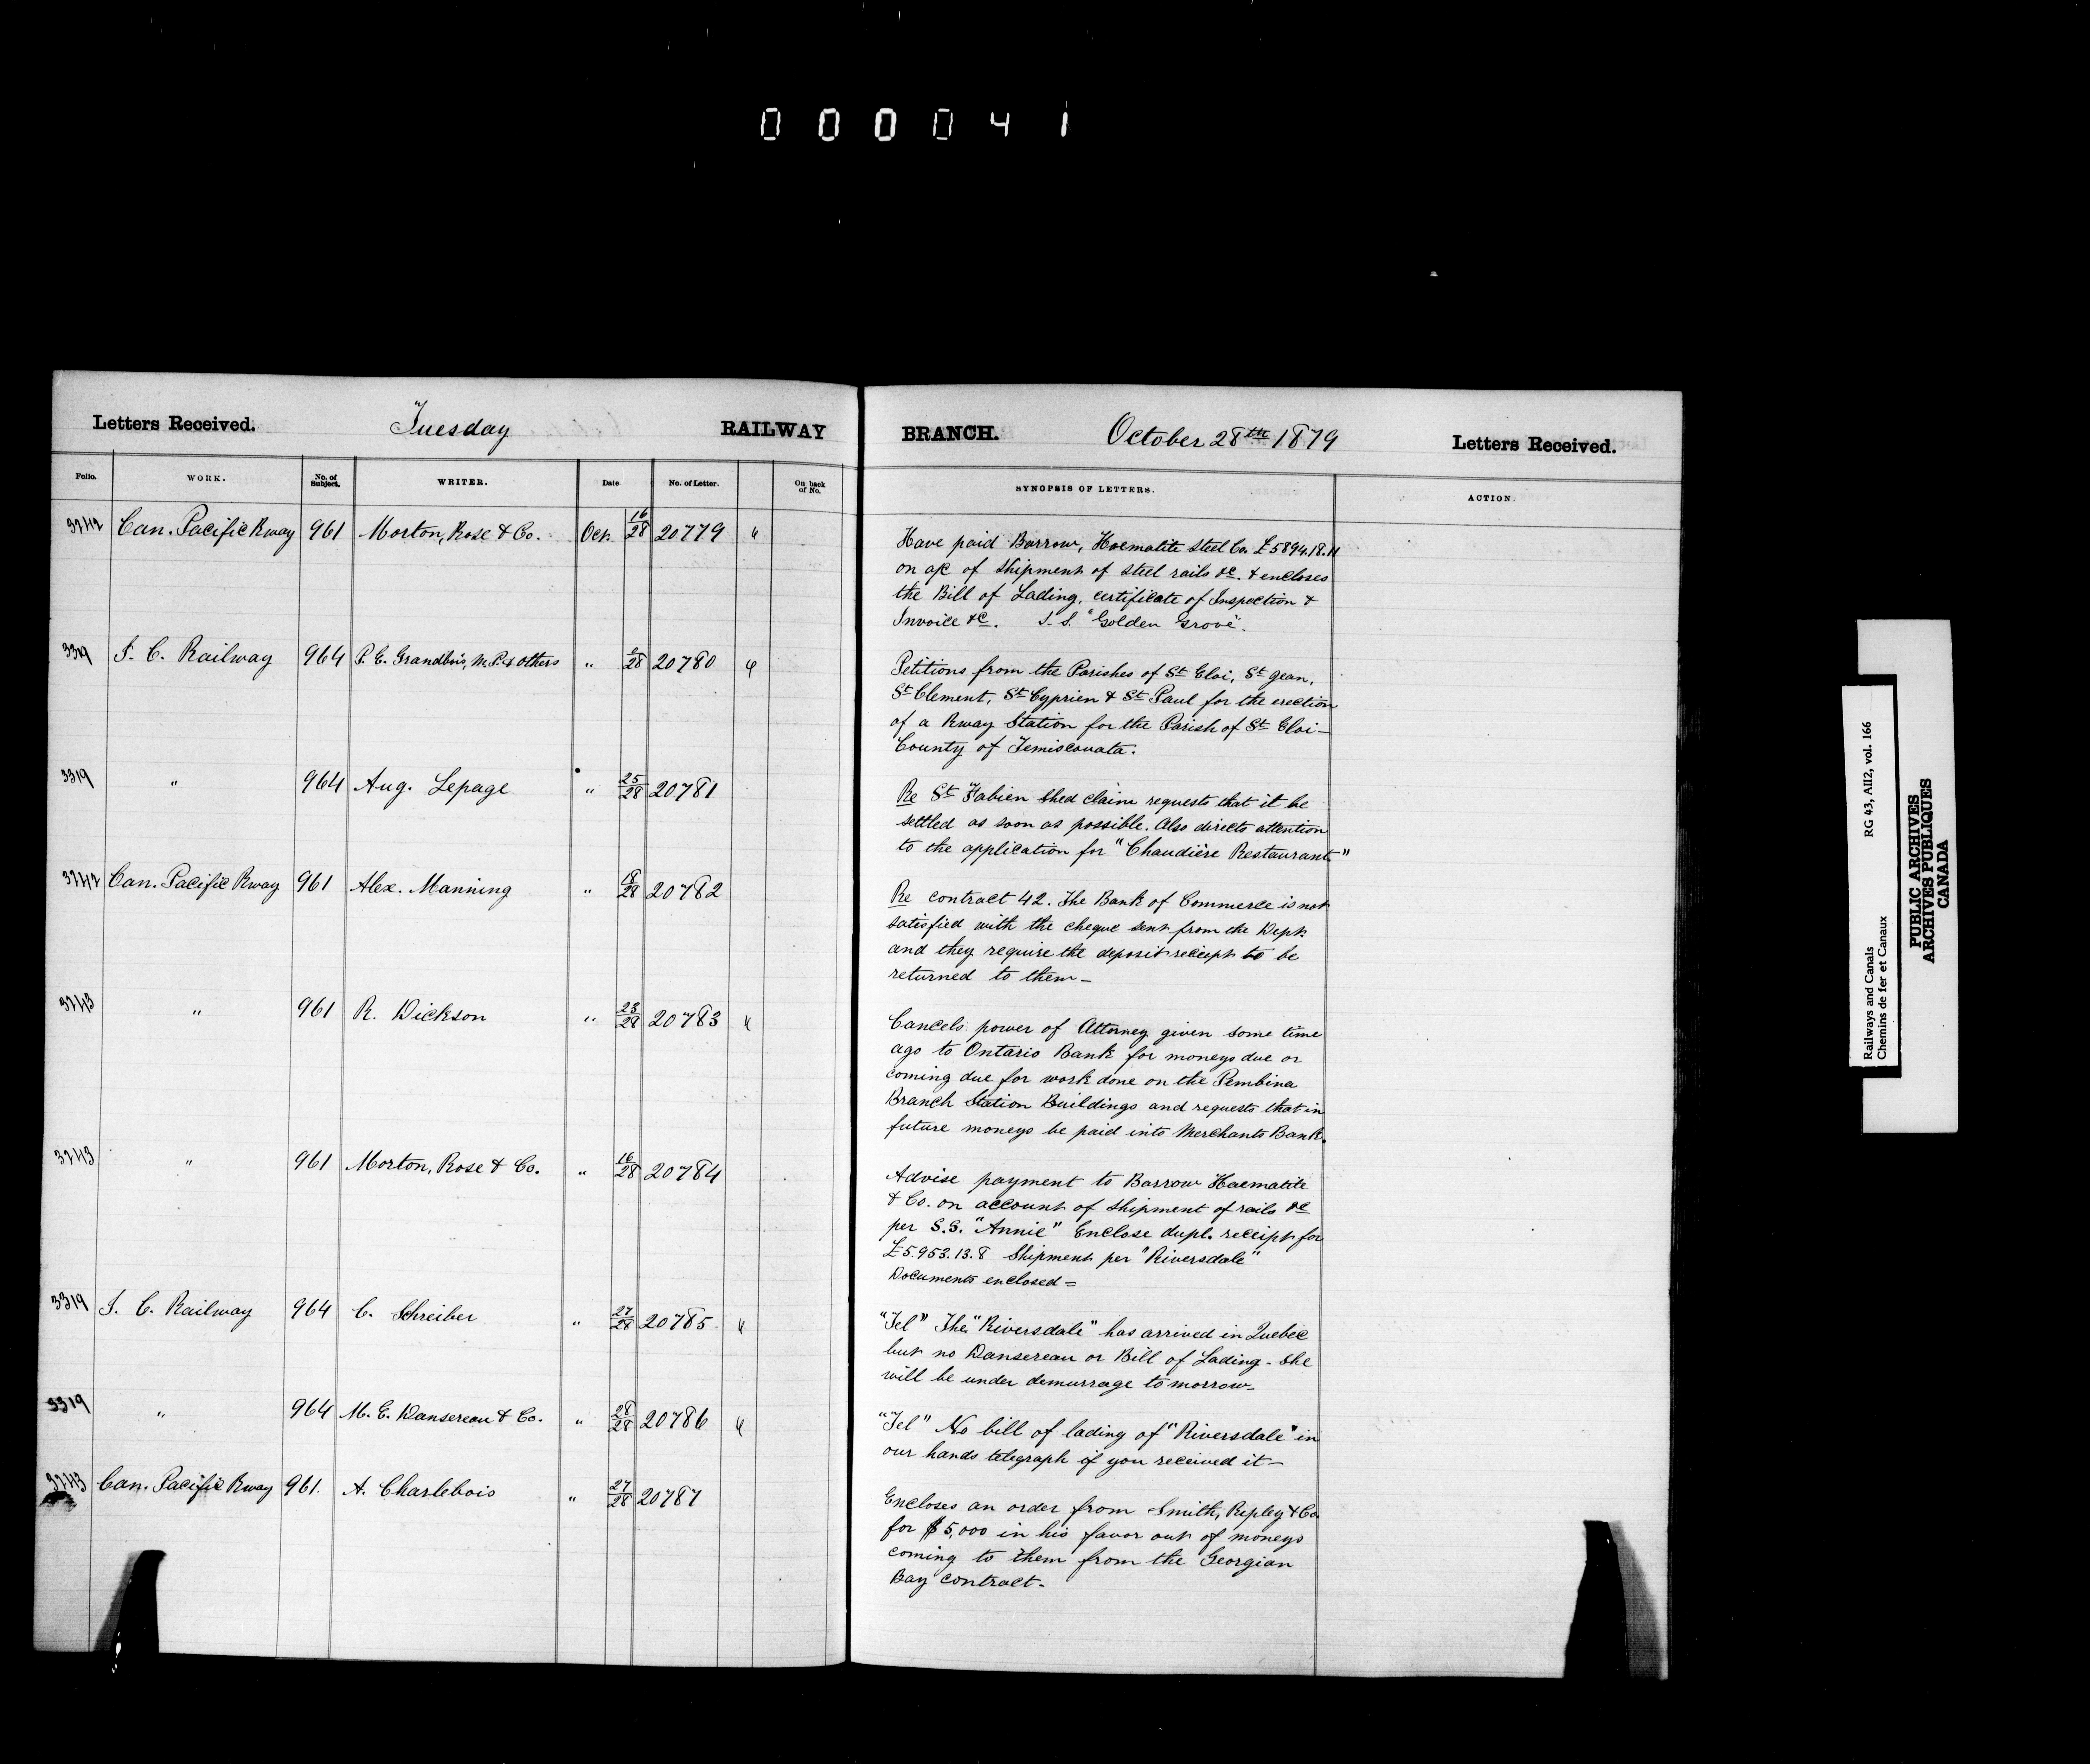 0 0 0 0 4 1
Letters Received. Tuesday RAILWAY BRANCH. October 28th 1879 Letters Received.
Folio. WORK. No. of Subject. WRITER. Date. No. of Letter. On back of No. SYNOPSIS OF LETTERS. ACTION.
3242 Can. Pacific Rway 961 Morton, Rose & Co. Oct. 16/28 20779 "
Have paid Barrow, Haematite Steel Co. £5894.18.11
on a/c of shipment of steel rails &c. & encloses
the Bill of Lading, certificate of Inspection &
Invoice &c. S.S. "Golden Grove".
3319 I. C. Railway 964 P. E. Grandbois, M.P. & others " /28 20780 "
Petitions from the Parishes of St Eloi, St Jean,
St Clement, St Cyprien & St Paul for the erection
of a Rway Station for the Parish of St Eloi -
County of Temiscouata.
3319 " 964 Aug. Lepage " 25/28 20781
Re St Fabien shed claim requests that it be
settled as soon as possible. Also directs attention
to the application for "Chaudière Restaurant"
3242 Can. Pacific Rway 961 Alex. Manning " 18/28 20782
Re contract 42. The Bank of Commerce is not
satisfied with the cheque sent from the Dept.
and they require the deposit receipt to be
returned to them -
3243 " 961 R. Dickson " 23/28 20783 "
Cancels power of Attorney given some time
ago to Ontario Bank for moneys due or
coming due for work done on the Pembina
Branch Station Buildings and requests that in
future moneys be paid into Merchants Bank.
3243 " 961 Morton, Rose & Co. " 16/28 20784
Advise payment to Barrow Haematite
& Co. on account of shipment of rails &c
per S.S. "Annie" Enclose dupl. receipt for
£5.953.13.8 Shipment per "Riversdale"
Documents enclosed =
3319 I. C. Railway 964 C. Schreiber " 27/28 20785 "
"Tel" The "Riversdale" has arrived in Quebec
but no Dansereau or Bill of Lading - She
will be under demurrage tomorrow -
3319 " 964 M. E. Dansereau & Co. " 28/28 20786 "
"Tel" No bill of lading of "Riversdale" in
our hands telegraph if you received it -
3243 Can. Pacific Rway 961. A. Charlebois " 27/28 20787
Encloses an order from Smith, Ripley & Co.
for $5,000 in his favor out of moneys
coming to them from the Georgian
Bay contract.
Railways and Canals RG 43, AII2, vol. 166
Chemins de fer et Canaux
PUBLIC ARCHIVES
ARCHIVES PUBLIQUES
CANADA